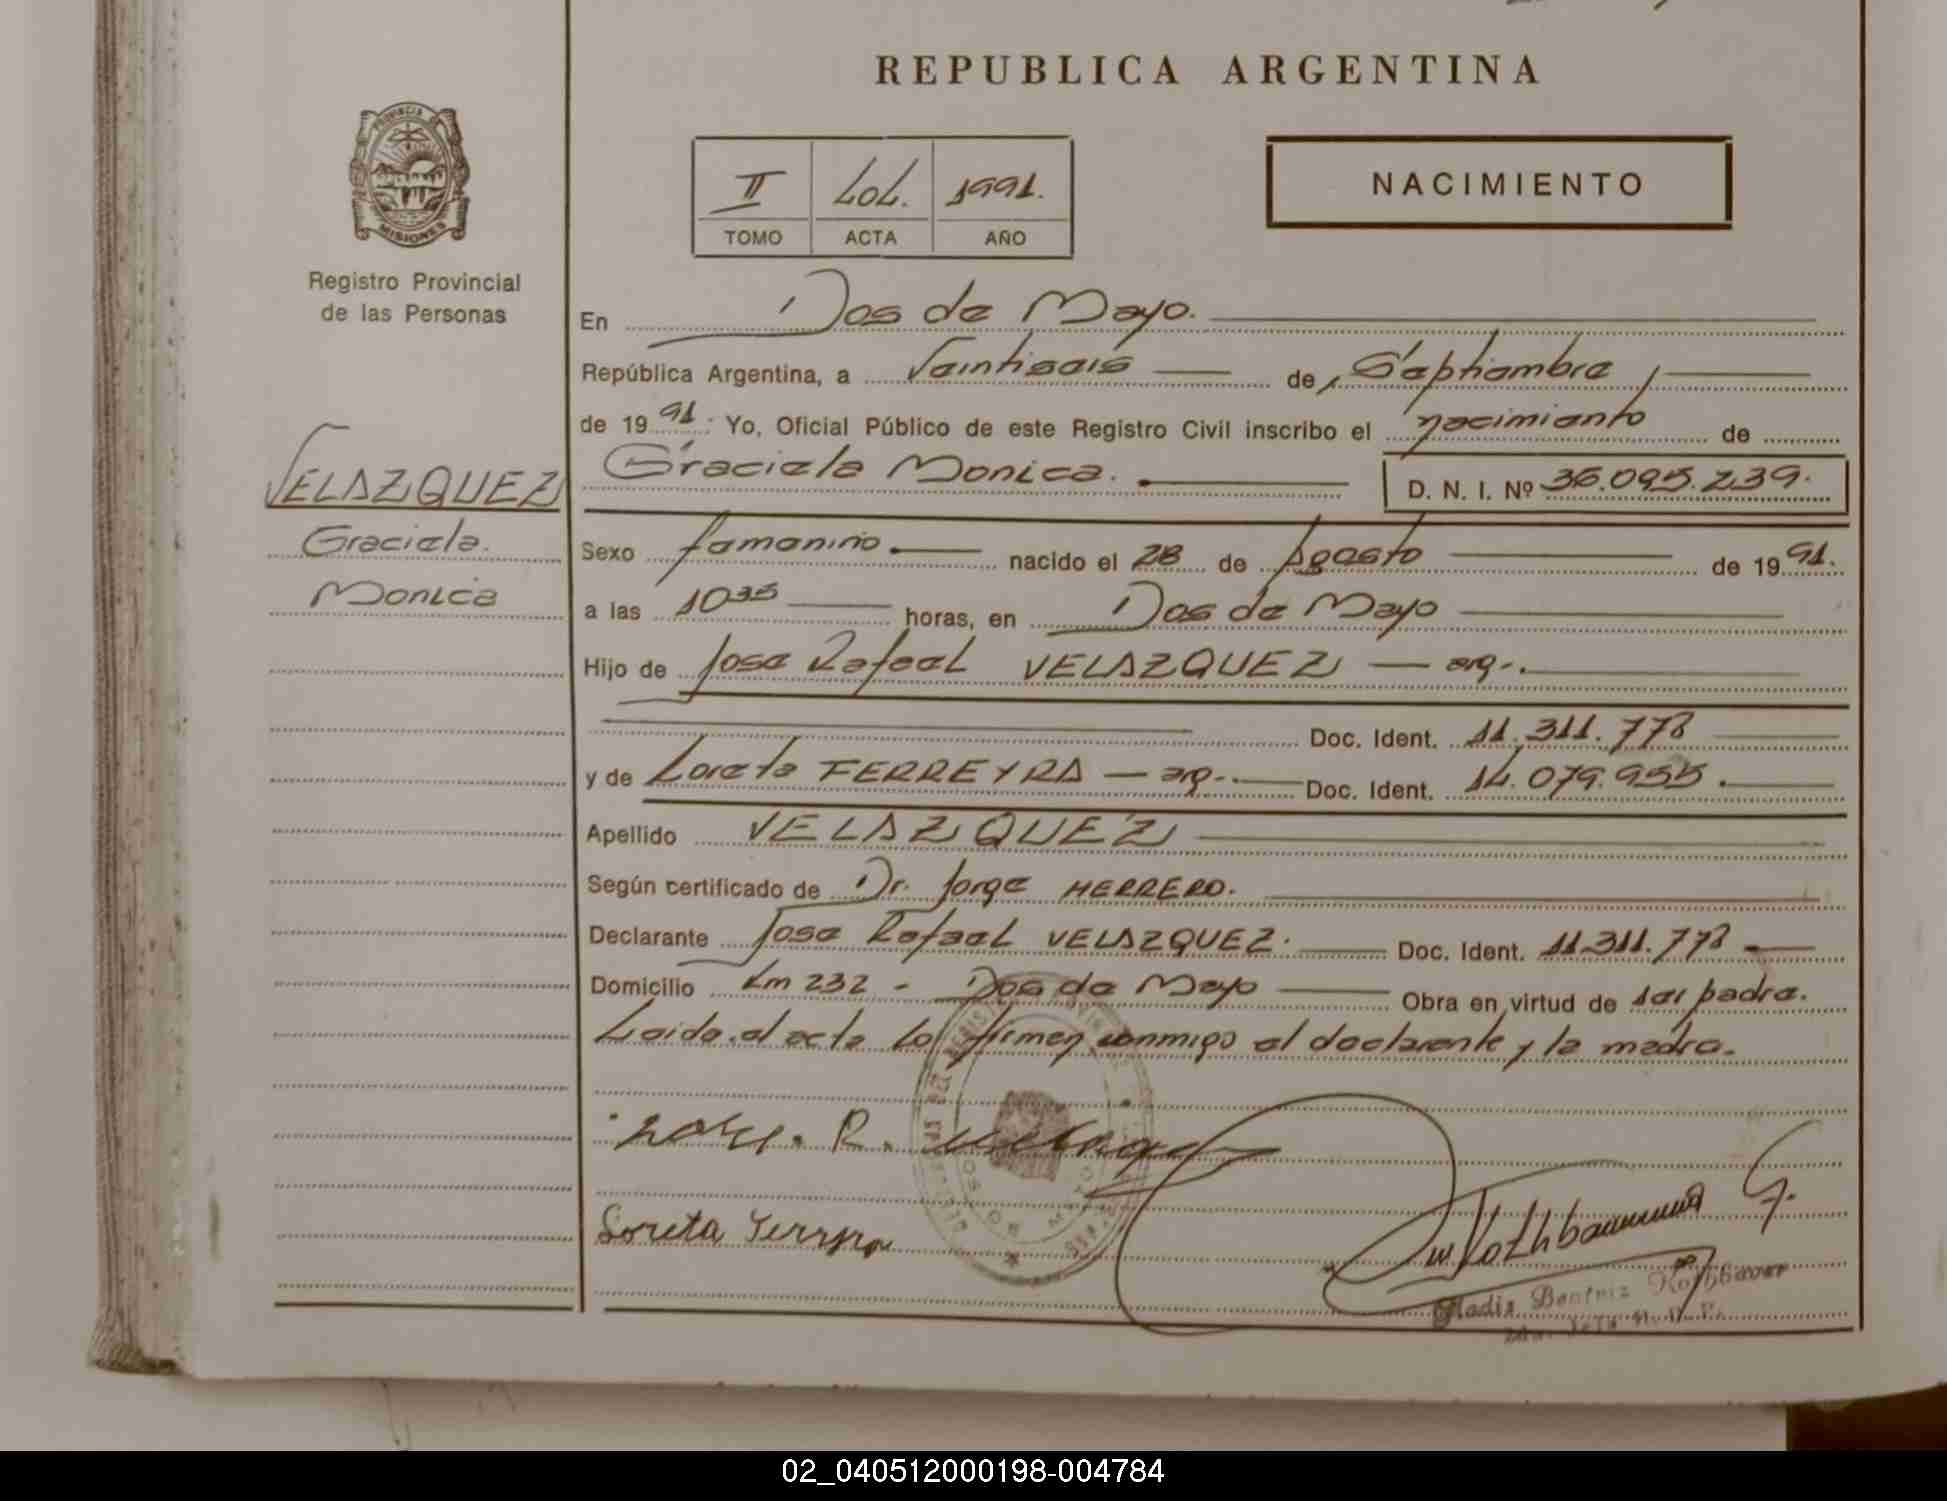 REPUBLICA ARGENTINA
PROVINCIA DE
MISIONES
Registro Provincial
de las Personas
II 404. 1991.
TOMO ACTA AÑO
NACIMIENTO
En Dos de Mayo.
República Argentina, a Veintiseis de Septiembre
de 19 91. Yo, Oficial Público de este Registro Civil inscribo el nacimiento de
VELAZQUEZ
Graciela
Monica
Graciela Monica. D. N. I. Nº 36.095.239.
Sexo femenino nacido el 28 de Agosto de 19 91.
a las 10 35 horas, en Dos de Mayo
Hijo de Jose Rafael VELAZQUEZ — arg.
Doc. Ident. 11.311.778
y de Loreta FERREYRA — arg. Doc. Ident. 14.079.955.
Apellido VELAZQUEZ
Según certificado de Dr. Jorge HERRERO.
Declarante Jose Rafael VELAZQUEZ. Doc. Ident. 11.311.778
Domicilio Km 232 - Dos de Mayo Obra en virtud de ser padre.
Leida el acta la firman conmigo el declarante y la madre.
Jose. R.
Loreta Ferreyra
Gladis Beatriz Rothbauer
02_040512000198-004784